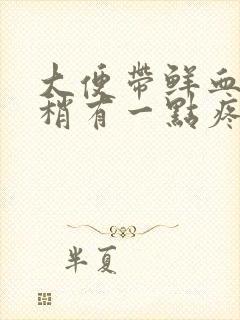 大便帶鮮血
稍有一點疼
半夏